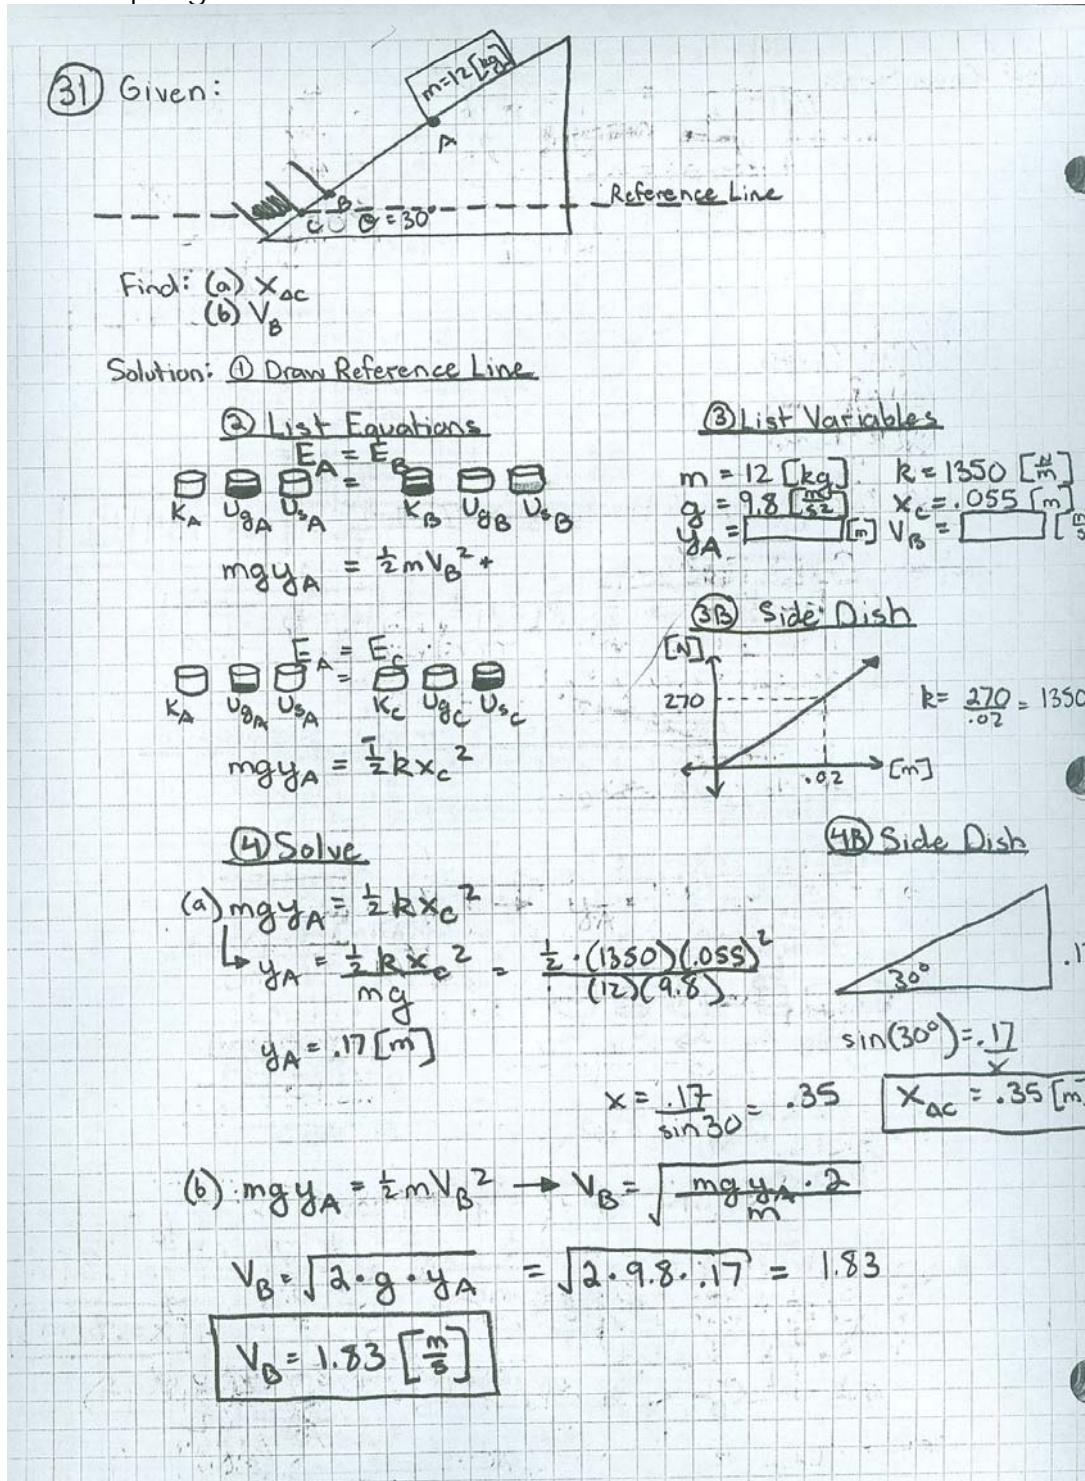 31 Given:
m=12[kg]
A
B
C θ = 30°
Reference Line
Find: (a) X_AC
(b) V_B
Solution: ① Draw Reference Line
② List Equations
E_A = E_B
=
K_A U_gA U_sA K_B U_gB U_sB
mgy_A = ½mV_B² +
E_A = E_C
=
K_A U_gA U_sA K_C U_gC U_sC
mgy_A = ½kx_C²
③ List Variables
m = 12 [kg] k = 1350 [N/m]
g = 9.8 [m/s²] x_C = .055 [m]
y_A = [m] V_B = [m/s]
3B Side Dish
[N]
270
.02 [m]
k = 270/.02 = 1350
④ Solve
(a) mgy_A = ½kx_C²
y_A = ½kx_C²/mg = ½·(1350)(.055)²/(12)(9.8)
y_A = .17 [m]
4B Side Dish
30°
.17
sin(30°) = .17/x
x = .17/sin30 = .35 X_AC = .35 [m]
(b) mgy_A = ½mV_B² → V_B = √(mgy_A·2/m)
V_B = √(2·g·y_A) = √(2·9.8·.17) = 1.83
V_B = 1.83 [m/s]